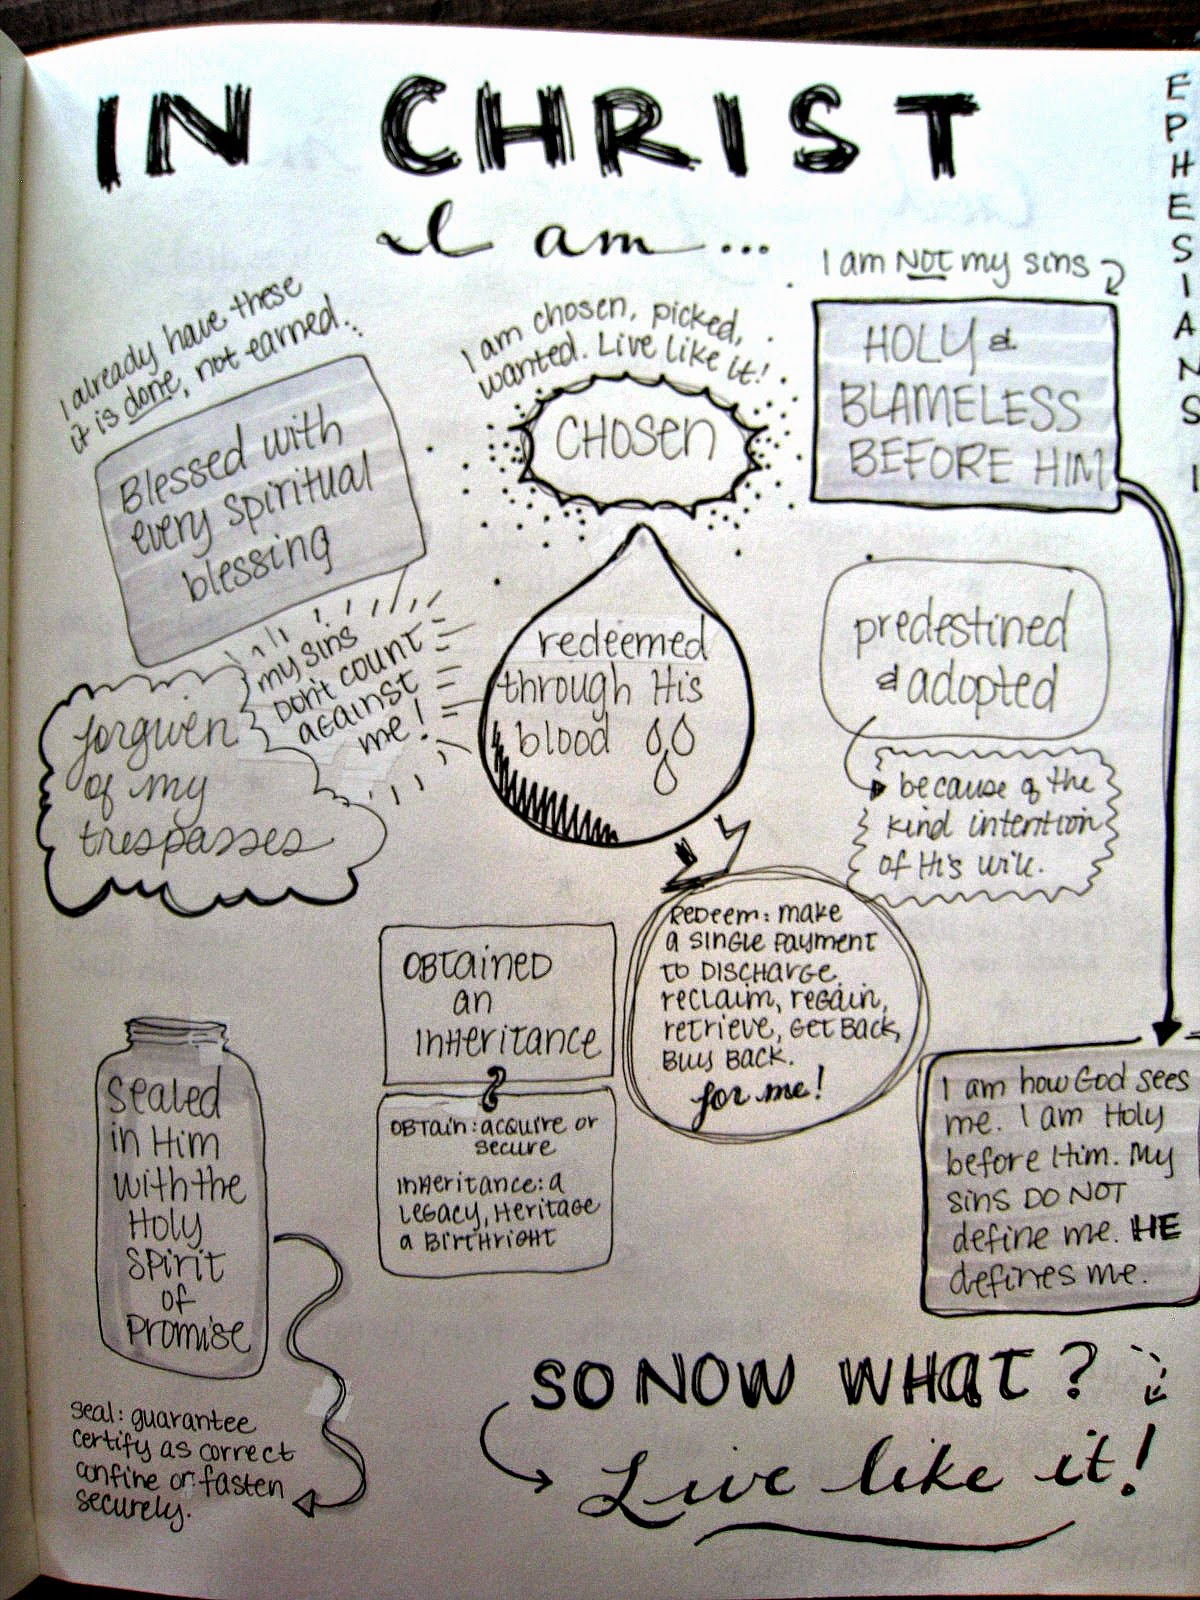 IN CHRIST
I am...
EPHESIANS 1
I already have these
it is done, not earned...
Blessed with
every spiritual
blessing
I am chosen, picked,
wanted. Live like it!
CHOSEN
I am NOT my sins
HOLY &
BLAMELESS
BEFORE HIM
my sins
DON'T COUNT
AGAINST
me!
forgiven
of my
trespasses
redeemed
through His
blood
predestined
& adopted
because of the
kind intention
of His will.
REDEEM: make
a single payment
to DISCHARGE
reclaim, regain,
retrieve, get back,
buy back.
for me!
OBTAINED
an
INHERITANCE
OBTAIN: acquire or
secure
INHERITANCE: a
LEGACY, HERITAGE
a BIRTHRIGHT
sealed
in Him
with the
Holy
Spirit
of
Promise
seal: guarantee
certify as correct
confine or fasten
securely.
I am how God sees
me. I am Holy
before Him. My
sins DO NOT
define me. HE
defines me.
SO NOW WHAT?
Live like it!